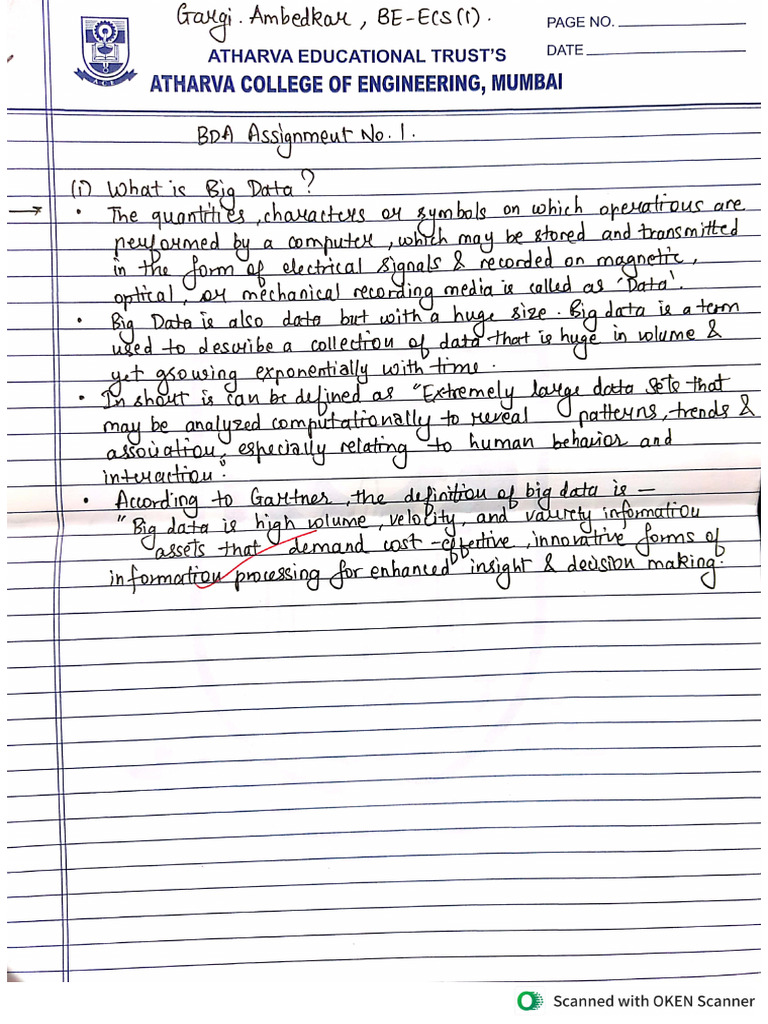 Gargi. Ambedkar, BE-ECS(1).
PAGE NO.
DATE
ATHARVA EDUCATIONAL TRUST'S
ATHARVA COLLEGE OF ENGINEERING, MUMBAI
ACE
BDA Assignment No. 1.
(1) What is Big Data?
→ • The quantities, characters or symbols on which operations are
performed by a computer, which may be stored and transmitted
in the form of electrical signals & recorded on magnetic,
optical, or mechanical recording media is called as 'Data'.
• Big Data is also data but with a huge size. Big data is a term
used to describe a collection of data that is huge in volume &
yet growing exponentially with time.
• In short is can be defined as "Extremely large data sets that
may be analyzed computationally to reveal patterns, trends &
association, especially relating to human behavior and
interaction."
• According to Gartner, the definition of big data is -
"Big data is high volume, velocity, and variety information
assets that demand cost-effective, innovative forms of
information processing for enhanced insight & decision making.
Scanned with OKEN Scanner